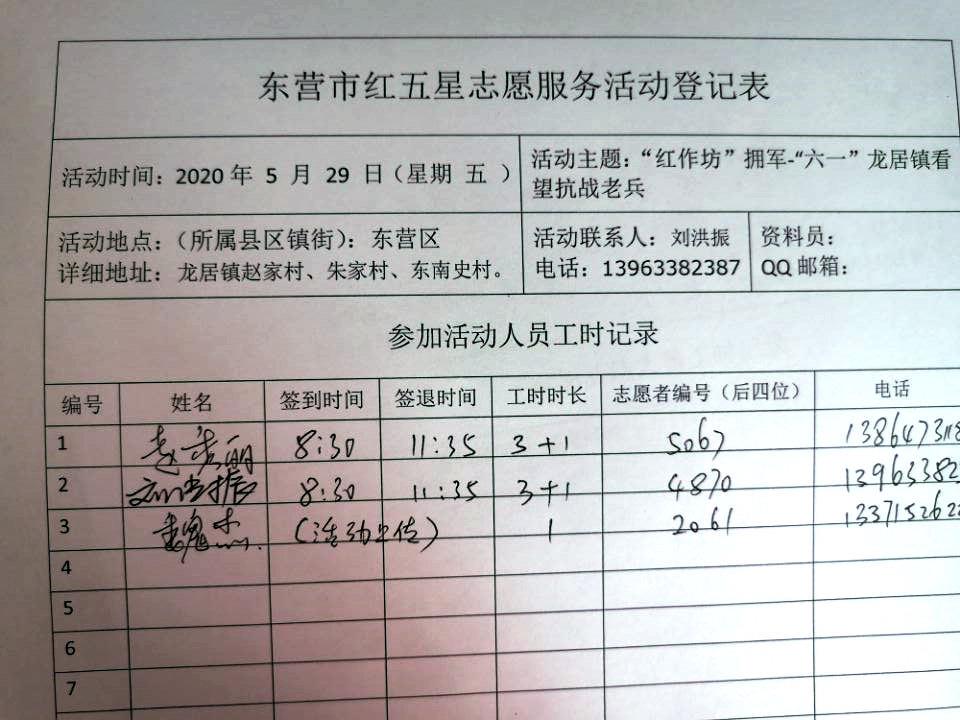 东营市红五星志愿服务活动登记表
活动时间：2020 年 5 月 29 日（星期 五 ）
活动主题：“红作坊”拥军-“六一”龙居镇看
望抗战老兵
活动地点：（所属县区镇街）：东营区
详细地址：龙居镇赵家村、朱家村、东南史村。
活动联系人：刘洪振
电话：13963382387
资料员：
QQ 邮箱：
参加活动人员工时记录
编号 姓名 签到时间 签退时间 工时时长 志愿者编号（后四位） 电话
1 赵 丽 8:30 11:35 3+1 5067 138647311
2 刘洪振 8:30 11:35 3+1 4870 139633823
3 魏杰 （活动上传） 1 2061 133715262
4
5
6
7